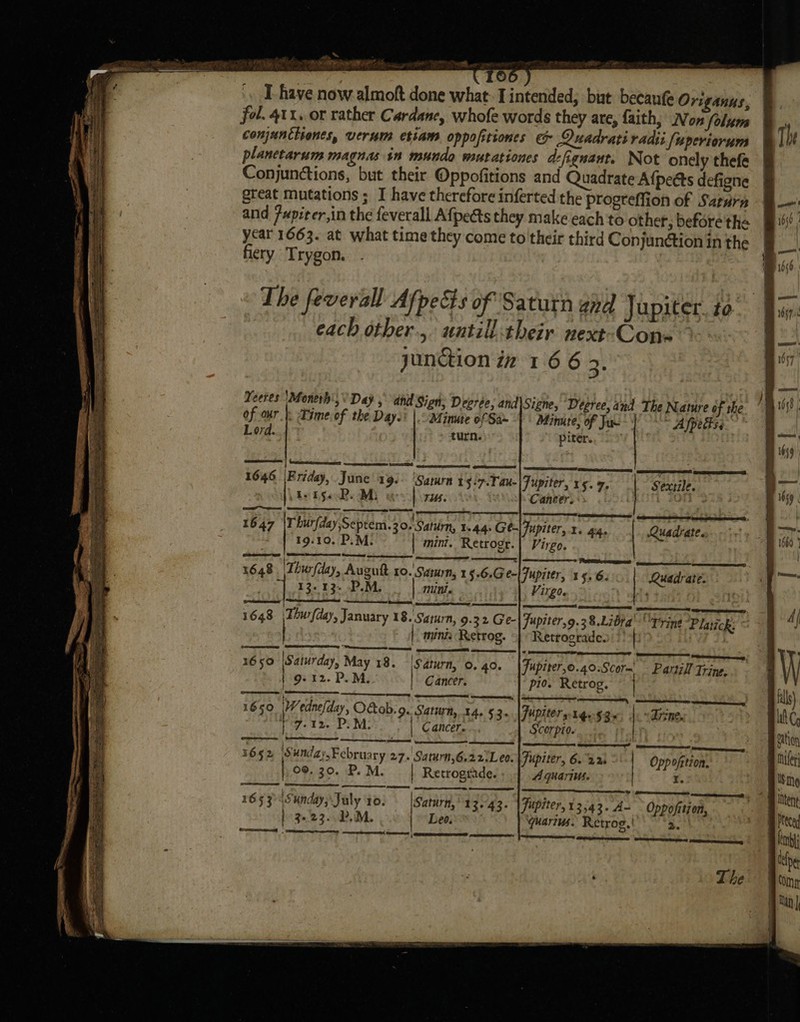 (106)
I have now almoſt done what I intended, but becauſe Origanus,
fol. 411. or rather Cardane, whoſe words they are, ſaith, Non ſolum
conjunctiones, verum etiam oppoſitiones & Quadrati radii ſuperiorum
planetarum magnas in mundo mutationes deſignant. Not onely theſe
Conjunctions, but their Oppoſitions and Quadrate Aſpects deſigne
great mutations ; I have therefore inſerted the progreſſion of Saturn
and Jupiter, in the ſeverall Aſpects they make each to other, before the
year 1663. at what time they come to their third Conjunction in the
fiery Trygon.
The ſeverall Aſpects of Saturn and Jupiter to
each other, untill their next Con-
junction in 1663.
Yeeres of our Lord. | Moneth, Day, and Time of the Day. | Sign, Degree, and Minute of Sa- turn. | Signe, Degree, and Minute, of Ju- piter. | The Nature of the Aſpects.
1646 | Friday, June 19. | Saturn 15.7.Tau- | Jupiter, 15. 7. | Sextile.
1. 15. P. M. | rus. | Cancer.
1647 | Thurſday, Septem. 30. | Saturn, 1.44. Ge- | Jupiter, 1. 44. | Quadrate.
19.10. P.M. | mini. Retrogr. | Virgo.
1648 | Thurſday, Auguſt 10. | Saturn, 15.6.Ge- | Jupiter, 15. 6. | Quadrate.
13. 13. P.M. | mini. | Virgo.
1648 | Thurſday, January 18. | Saturn, 9.32 Ge- | Jupiter, 9.38.Libra | Trine Platick.
mini. Retrog. | Retrograde.
1650 | Saturday, May 18. | Saturn, 0. 40. | Jupiter, 0.40.Scor- | Partill Trine.
9. 12. P. M. | Cancer. | pio. Retrog.
1650 | Wedneſday, Octob. 9. | Saturn, 14. 53. | Jupiter, 14. 53. | Trine.
7. 12. P. M. | Cancer. | Scorpio.
1652 | Sunday, February 27. | Saturn, 6.22. Leo. | Jupiter, 6. 22. | Oppoſition.
00. 30. P. M. | Retrograde. | Aquarius. | 1.
1653 | Sunday, July 10. | Saturn, 13. 43. | Jupiter, 13.43. A- | Oppoſition,
3. 23. P.M. | Leo. | quarius. Retrog. | 2.
The